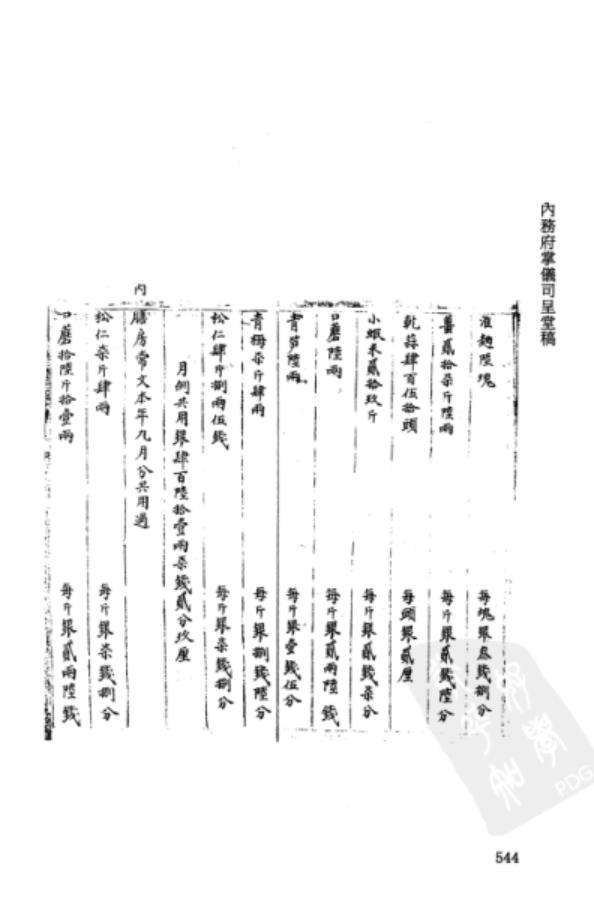 內務府掌儀司呈堂稿
淮麯陸塊 每塊銀叁錢捌分
薑貳拾柒斤陸兩 每斤銀貳錢陸分
乾蒜肆百伍拾頭 每頭銀貳厘
小蝦米貳拾玖斤 每斤銀貳錢柒分
口蘑陸兩 每斤銀貳兩陸錢
青笋陸兩 每斤銀壹錢伍分
青梅柒斤肆兩 每斤銀捌錢陸分
松仁肆斤捌兩伍錢 每斤銀柒錢捌分
月例共用銀肆百陸拾壹兩柒錢貳分玖厘
內膳房常文本年九月分共用過
松仁柒斤肆兩 每斤銀柒錢捌分
口蘑拾陸斤拾壹兩 每斤銀貳兩陸錢
544
PDG